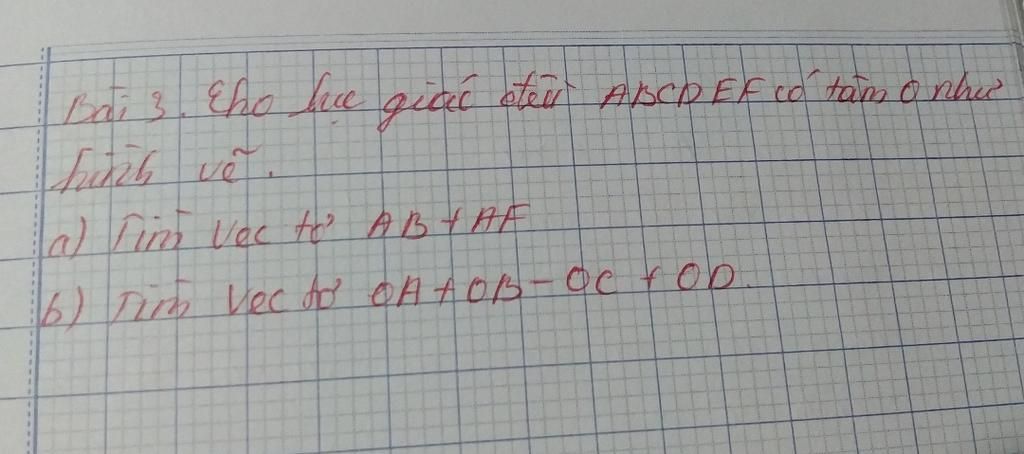 Bài 3. Cho lục giác đều ABCDEF có tâm O như
hình vẽ.
a) Tính vec tơ AB + AF
b) Tính vec tơ OA + OB - OC + OD.